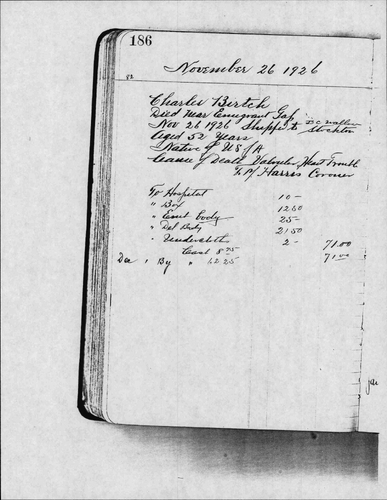 186
82
November 26 1926
Charles Birtch
Died near Emigrant Gap
Nov 26 1926 Shipped to Stockton
Aged 52 Years
Native of USA
Cause of Death Valvular Heart Trouble
Harris Coroner
To Hospital 10 -
" Box 12 50
" Emb body 25 -
" Del Body 21 50
" Underclothes 2 - 71.00
Cash 8 75
Dec " By " 62 25 71 00